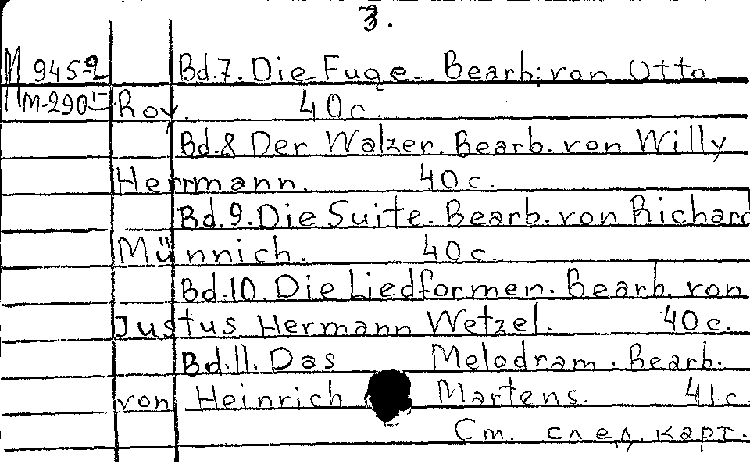 3.
M 945-2 Bd.7. Die Fuge. Bearb. von Otto
M-290 Roy. 40 c.
Bd.8 Der Walzer. Bearb. von Willy
Herrmann. 40 c.
Bd.9. Die Suite. Bearb. von Richard
Münnich. 40 c.
Bd.10. Die Liedformen. Bearb. von
Justus Hermann Wetzel. 40 c.
Bd.11. Das Melodram. Bearb.
von Heinrich Martens. 41 c.
См. след. карт.